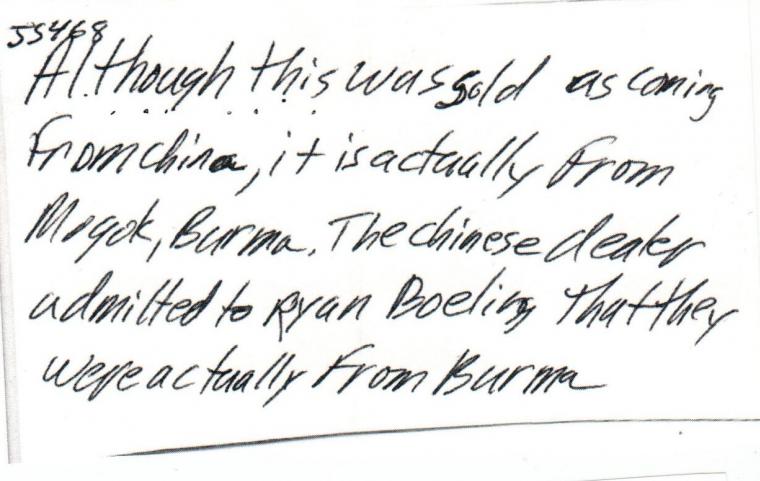 55468
Although this was sold as coming
From china, it is actually From
Mogok, Burma. The chinese dealer
admitted to Ryan Boeling That they
were actually From Burma